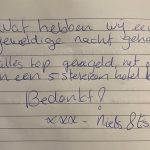 Wat hebben wij een
geweldige nacht gehad
alles top geregeld, net als
in een 5 sterren hotel
Bedankt!
xxx -